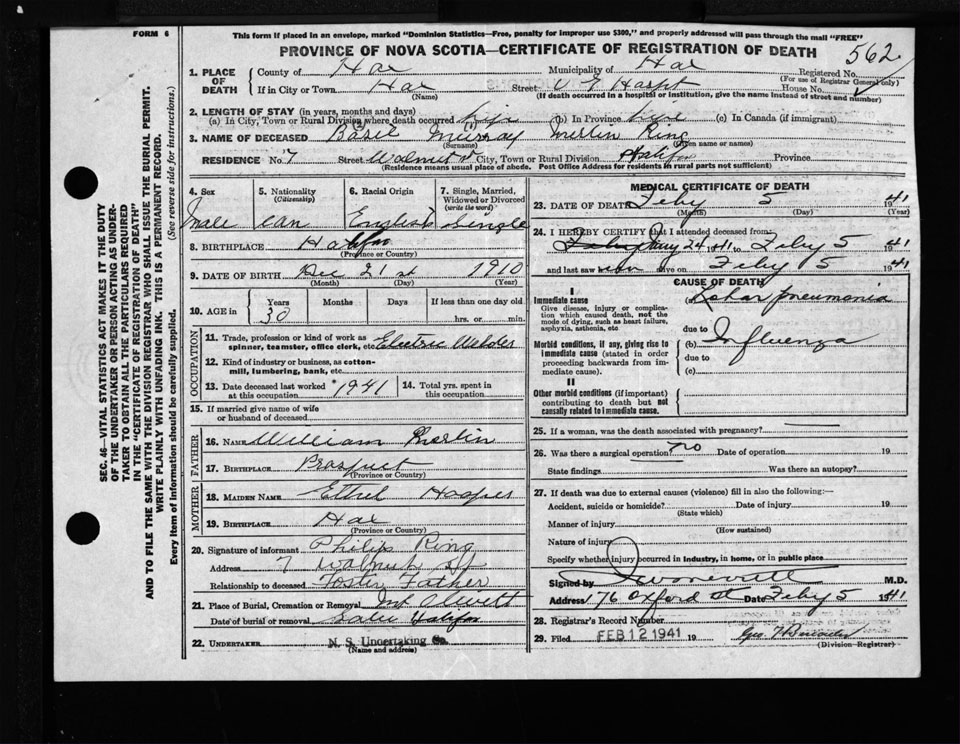 FORM 6
This form if placed in an envelope, marked "Dominion Statistics—Free, penalty for improper use $300," and properly addressed will pass through the mail "FREE"
PROVINCE OF NOVA SCOTIA—CERTIFICATE OF REGISTRATION OF DEATH
562
Registered No.
(For use of Registrar General only)
1. PLACE OF DEATH
County of Hax
Municipality of Hax
If in City or Town Hax
(Name)
Street
House No.
(If death occurred in a hospital or institution, give the name instead of street and number)
2. LENGTH OF STAY (in years, months and days)
(a) In City, Town or Rural Division where death occurred life (b) In Province (c) In Canada (if immigrant)
3. NAME OF DECEASED Basil Murray Merlin Ring
(Surname) (Given name or names)
RESIDENCE No. 7 Street Walnut st City, Town or Rural Division Halifax Province
(Residence means usual place of abode. Post Office Address for residents in rural parts not sufficient)
4. Sex
Male
5. Nationality
(Citizenship)
can
6. Racial Origin
English
7. Single, Married, Widowed or Divorced
(write the word)
Single
8. BIRTHPLACE Halifax
(Province or Country)
9. DATE OF BIRTH Dec 21st 1910
(Month) (Day) (Year)
10. AGE in
Years Months Days If less than one day old
30 hrs. or min.
OCCUPATION
11. Trade, profession or kind of work as spinner, teamster, office clerk, etc. Electric Welder
12. Kind of industry or business, as cotton-mill, lumbering, bank, etc.
13. Date deceased last worked at this occupation 1941
14. Total yrs. spent in this occupation
15. If married give name of wife or husband of deceased
FATHER
16. NAME William Merlin
17. BIRTHPLACE Prospect
(Province or County)
MOTHER
18. MAIDEN NAME Ethel Hooper
19. BIRTHPLACE Hax
(Province or Country)
20. Signature of informant Philip Ring
Address 7 Walnut St
Relationship to deceased Foster Father
21. Place of Burial, Cremation or Removal Mt Olivett
Date of burial or removal Halifax
22. UNDERTAKER N. S. Undertaking Co.
(Name and address)
MEDICAL CERTIFICATE OF DEATH
23. DATE OF DEATH Feby 5 1941
(Month) (Day)
24. I HEREBY CERTIFY that I attended deceased from:
24 41 to Feby 5 1941
and last saw him alive on Feby 5 1941
CAUSE OF DEATH
I
Immediate cause
Give disease, injury or complication which caused death, not the mode of dying, such as heart failure, asphyxia, asthenia, etc
(a) Lobar pneumonia
due to
Morbid conditions, if any, giving rise to immediate cause (stated in order proceeding backwards from immediate cause).
(b) Influenza
due to
(c)
II
Other morbid conditions (if important) contributing to death but not causally related to immediate cause.
25. If a woman, was the death associated with pregnancy?
26. Was there a surgical operation? no Date of operation 19
State findings Was there an autopsy?
27. If death was due to external causes (violence) fill in also the following:—
Accident, suicide or homicide? Date of injury 19
(State which)
Manner of injury
(How sustained)
Nature of injury
Specify whether injury occurred in industry, in home, or in public place
Signed by M.D.
Address 76 Oxford st Date Feby 5 1941
28. Registrar's Record Number
29. Filed FEB 12 1941 19
Geo.
(Division Registrar)
SEC. 46—VITAL STATISTICS ACT MAKES IT THE DUTY
OF THE UNDERTAKER OR PERSON ACTING AS UNDERTAKER
TO OBTAIN ALL THE PARTICULARS REQUIRED
IN THE "CERTIFICATE OF REGISTRATION OF DEATH"
AND TO FILE THE SAME WITH THE DIVISION REGISTRAR WHO SHALL ISSUE THE BURIAL PERMIT.
WRITE PLAINLY WITH UNFADING INK. THIS IS A PERMANENT RECORD.
Every item of Information should be carefully supplied. (See reverse side for instructions.)